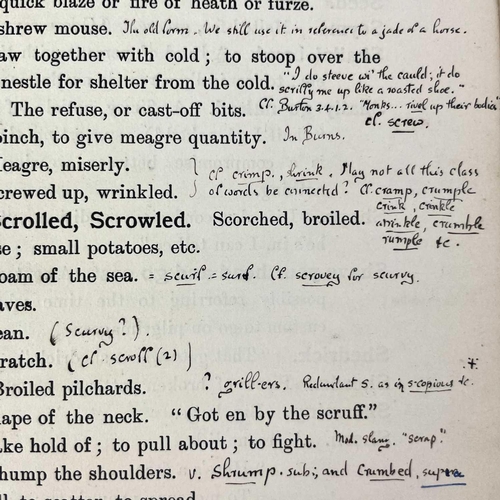 quick blaze or fire of heath or furze.
shrew mouse. The old form. We still use it in reference to a jade of a horse.
aw together with cold; to stoop over the
nestle for shelter from the cold. "I do steeve wi' the cauld; it do
scriffy me up like a roasted shoe."
The refuse, or cast-off bits. Cf. Burton 3.4.1.2. "Monks... rivel up their bodies"
cf. screw.
pinch, to give meagre quantity. In Burns.
Meagre, miserly.
cf crimp, shrink. May not all this class
screwed up, wrinkled. of words be connected? Cf. cramp, crumple
crink, crinkle
Scrolled, Scrowled. Scorched, broiled. wrinkle, crumble
rumple &c.
se; small potatoes, etc.
oam of the sea. = scurf = surf. Cf. scrovey for scurvy.
aves.
ean. (Scurvy?).
ratch. (cf. scroll (2))
Broiled pilchards. ? grill-ers. Redundant s. as in s-copious &c.
nape of the neck. "Got en by the scruff."
ake hold of; to pull about; to fight. Mod. slang. "scrap."
hump the shoulders. v. Shrump. sub; and Crumbed, supra
to scatter, to spread.